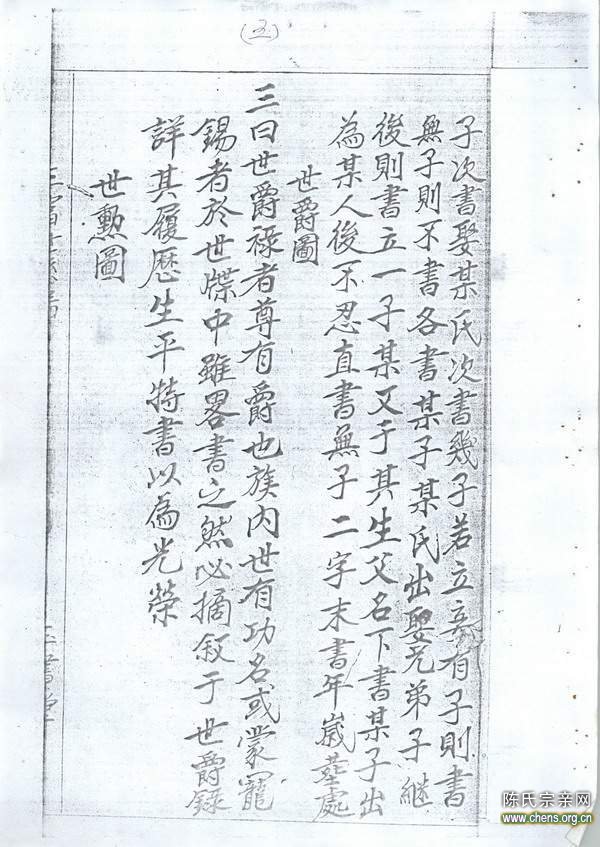 (五)
子次書娶某氏次書幾子若立妾有子則書
無子則不書各書某子某氏出娶兄弟子繼
後則書立一子某又于其生父名下書某子出
為某人後不忍直書無子二字末書年歲葬處
世爵圖
三曰世爵祿者尊有爵也族内世有功名或蒙寵
錫者於世牒中雖畧書之然必摘叙于世爵錄
詳其履歷生平特書以為光榮
世勲圖
陈氏宗亲网
www.chens.org.cn